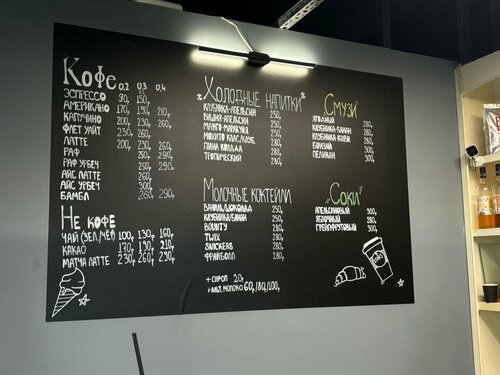 Кофе 0.2 0.3 0.4
ЭСПРЕССО 90, 150,
АМЕРИКАНО 170, 190, 210,
КАПУЧИНО 200, 230, 260,
ФЛЕТ УАЙТ 230, 260,
ЛАТТЕ 200, 230, 260,
РАФ 250, 290,
РАФ УРБЕЧ 250, 290,
АЙС ЛАТТЕ 260,
АЙС УРБЕЧ 300,
БАМБЛ 260, 290,
Не кофе
ЧАЙ (ЗЕЛ/ЧЁР) 100, 130, 160,
КАКАО 170, 190, 210,
МАТЧА ЛАТТЕ 230, 260, 290,
Холодные напитки
КЛУБНИКА-АПЕЛЬСИН 250,
ВИШНЯ-АПЕЛЬСИН 250,
МАНГО-МАРАКУЙЯ 250,
МОХИТО КЛАС/КЛУБ. 250,
ПИНА КОЛАДА 280,
ТРОПИЧЕСКИЙ 280,
Молочные коктейли
ВАНИЛЬ/ШОКОЛАД 250,
КЛУБНИКА/БАНАН 250,
BOUNTY 280,
TWIX 280,
SNICKERS 280,
ФРАЙБОЛЛ 280,
+ СИРОП 20,
+ АЛЬТ. МОЛОКО 60,/80,/100,
Смузи
ЯГОДНЫЙ 280,
КЛУБНИКА-БАНАН 280,
КЛУБНИКА-КИВИ 280,
БОНЗАЙ 280,
ПЕЛИКАН 300,
Соки
АПЕЛЬСИНОВЫЙ 300,
ЯБЛОЧНЫЙ 280,
ГРЕЙПФРУТОВЫЙ 300,